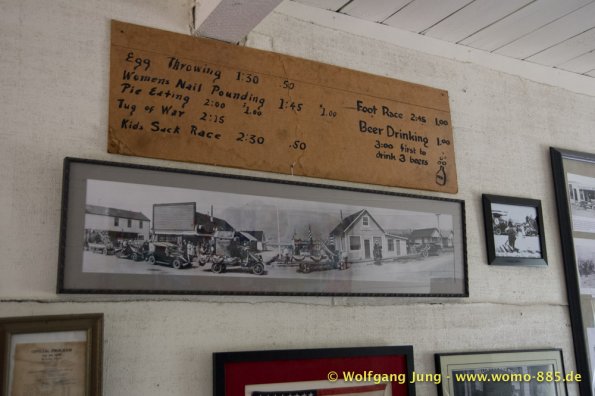 Egg Throwing 1:30 .50
Womens Nail Pounding 1:45 $1.00
Pie Eating 2:00 $1.00
Tug of War 2:15
Kids Sack Race 2:30 .50
Foot Race 2:45 1.00
Beer Drinking 1.00
3:00 first to
drink 3 beers
© Wolfgang Jung - www.womo-885.de